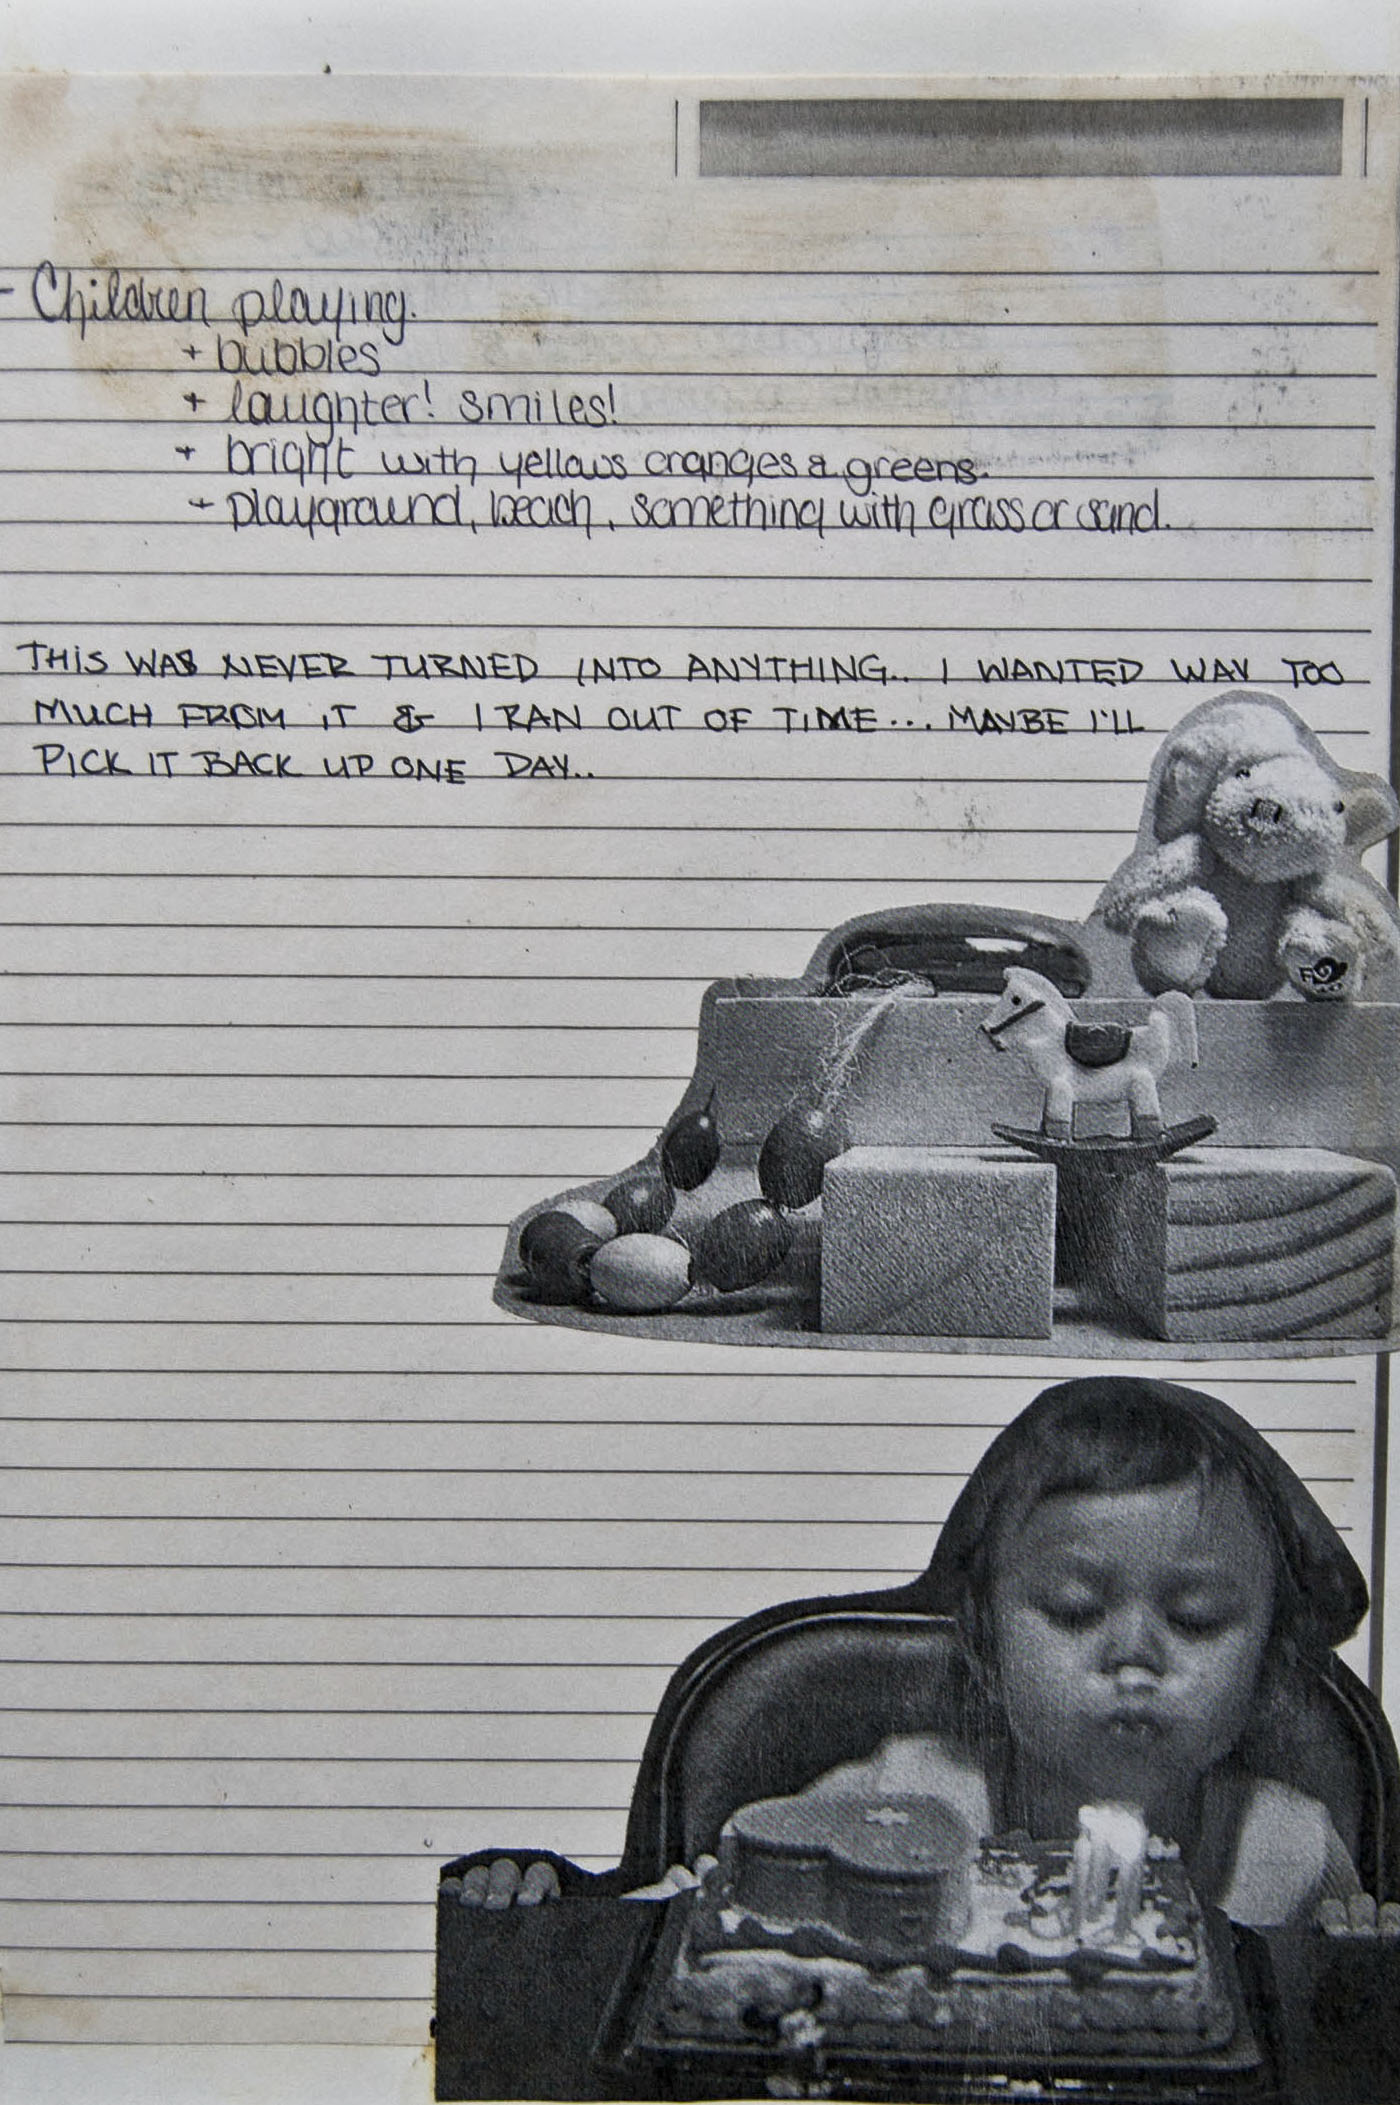 - Children playing.
+ bubbles
+ laughter! smiles!
+ bright with yellows oranges & greens.
+ playground, beach, something with grass or sand.
THIS WAS NEVER TURNED INTO ANYTHING.. I WANTED WAY TOO
MUCH FROM IT & I RAN OUT OF TIME... MAYBE I'LL
PICK IT BACK UP ONE DAY..